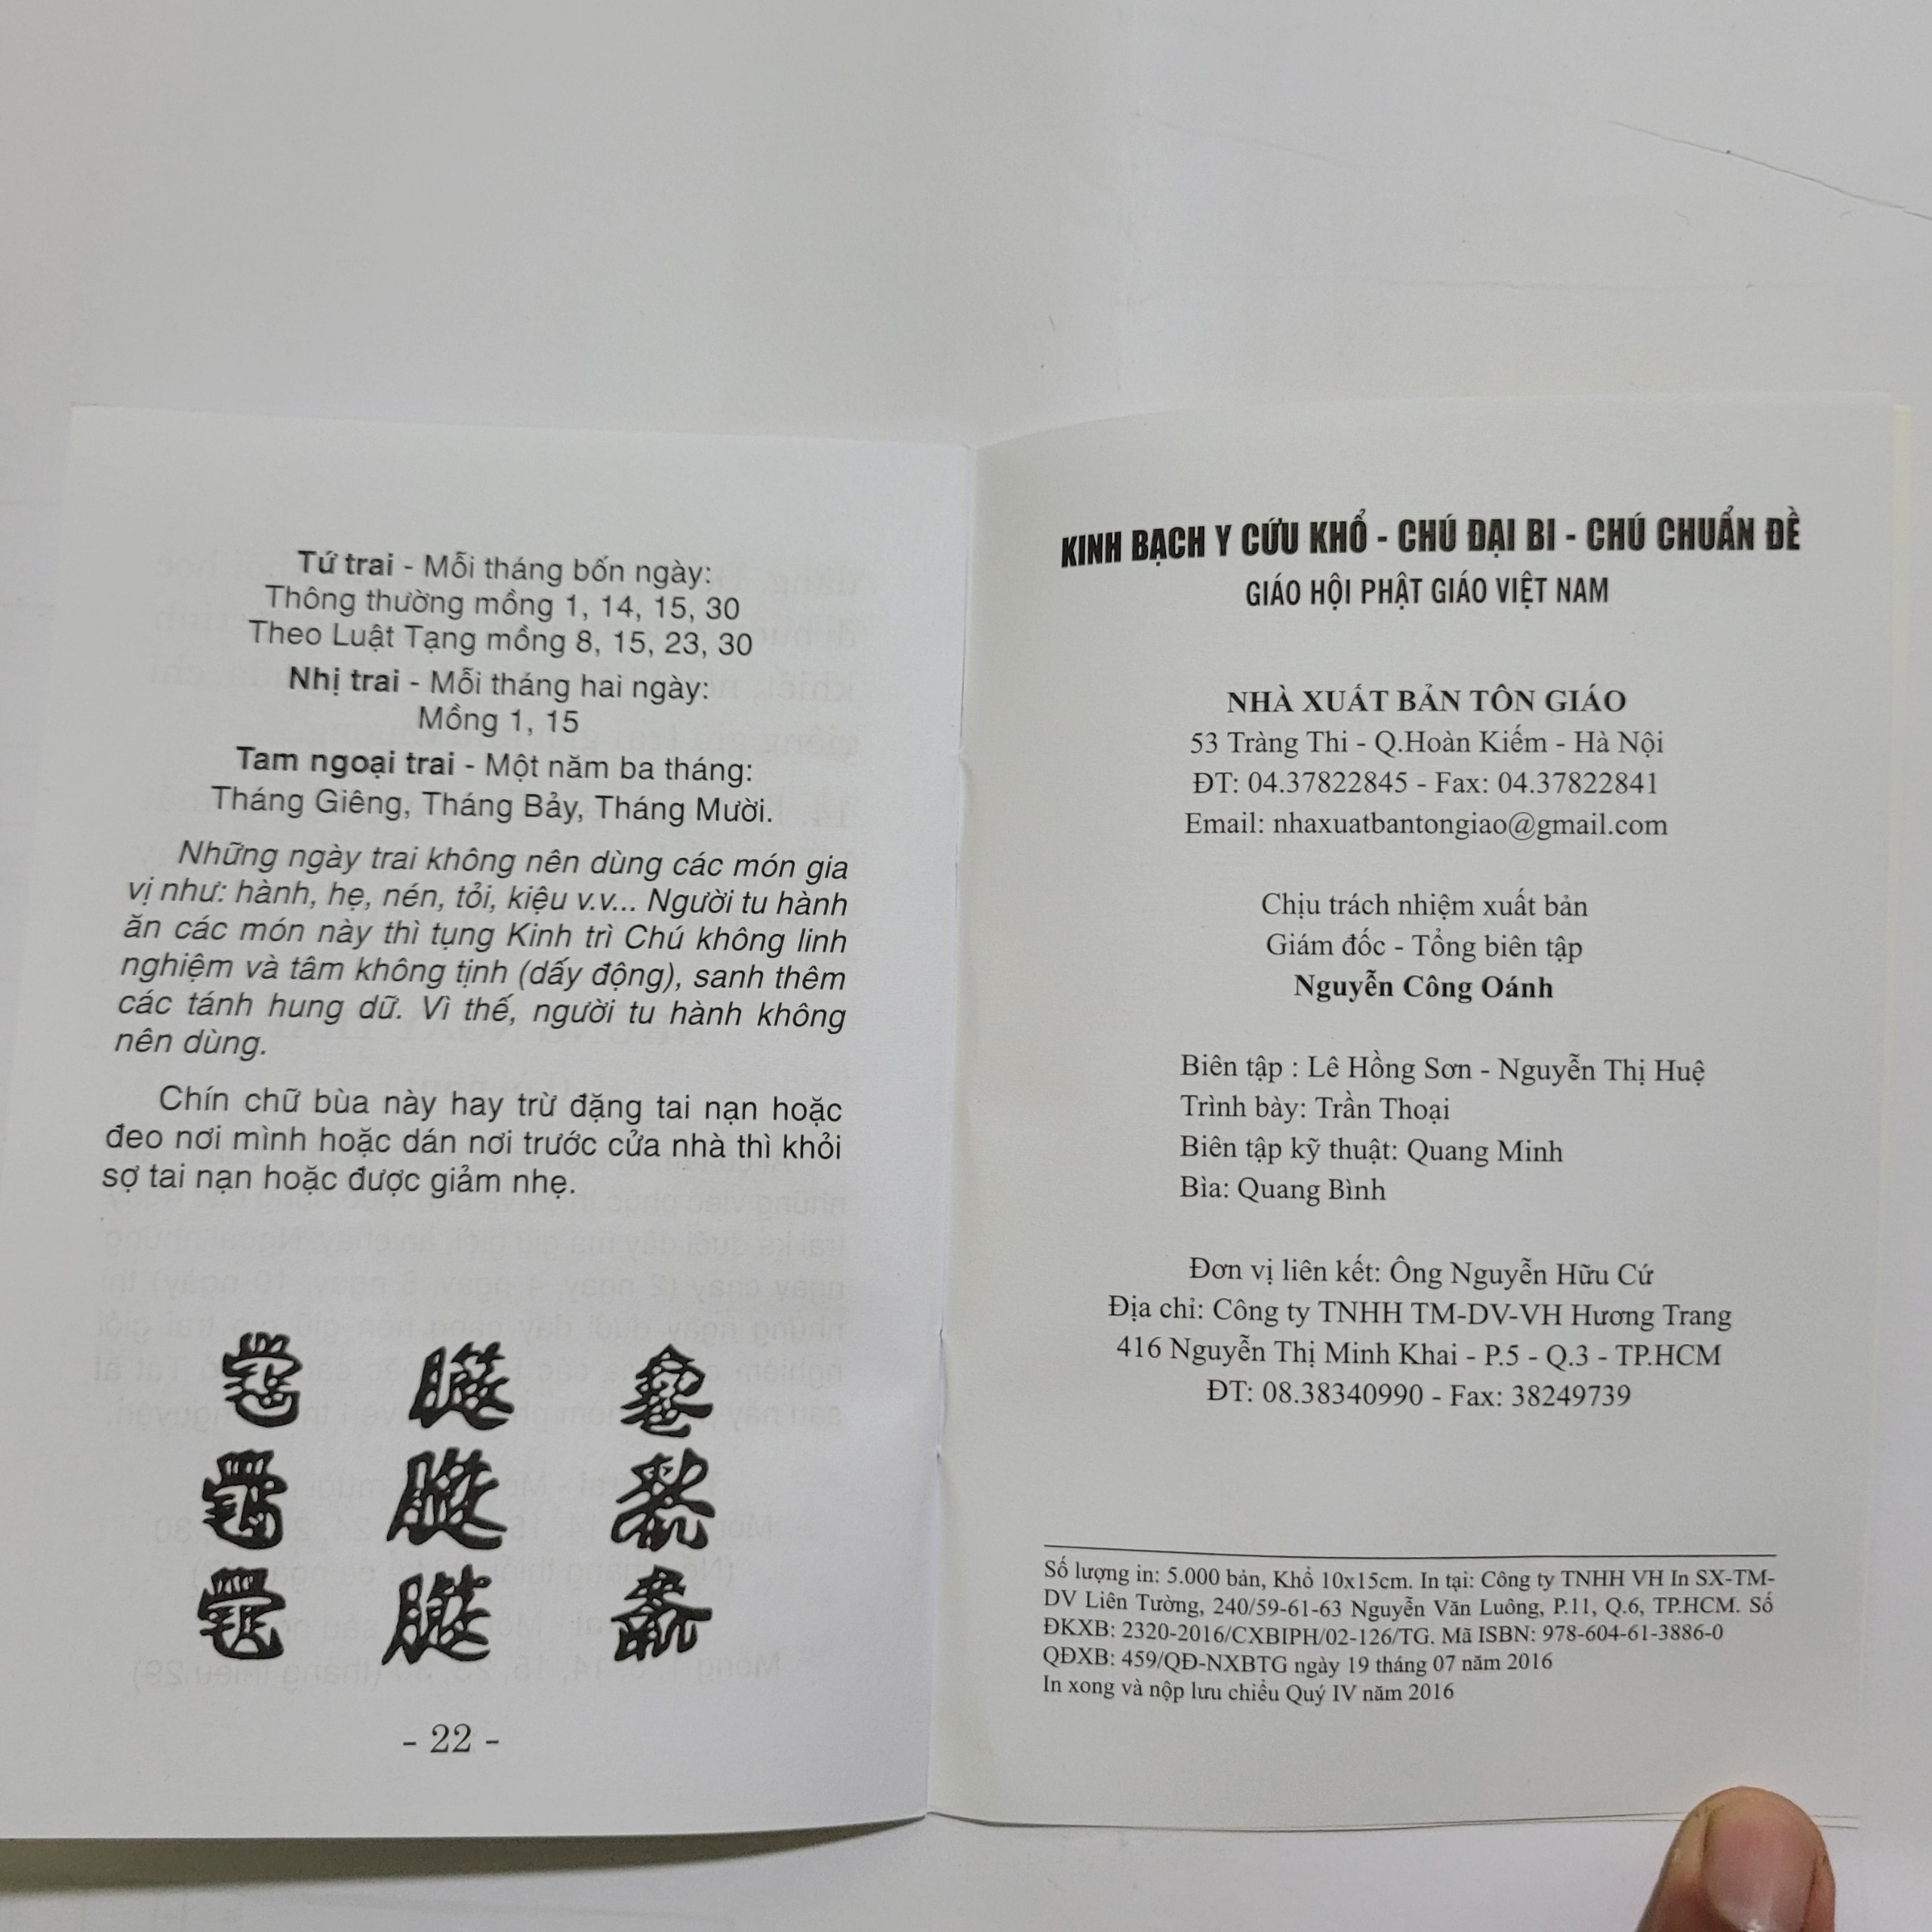 Tứ trai - Mỗi tháng bốn ngày:
Thông thường mồng 1, 14, 15, 30
Theo Luật Tạng mồng 8, 15, 23, 30
Nhị trai - Mỗi tháng hai ngày:
Mồng 1, 15
Tam ngoại trai - Một năm ba tháng:
Tháng Giêng, Tháng Bảy, Tháng Mười.
Những ngày trai không nên dùng các món gia
vị như: hành, hẹ, nén, tỏi, kiệu v.v... Người tu hành
ăn các món này thì tụng Kinh trì Chú không linh
nghiệm và tâm không tịnh (dấy động), sanh thêm
các tánh hung dữ. Vì thế, người tu hành không
nên dùng.
Chín chữ bùa này hay trừ đặng tai nạn hoặc
đeo nơi mình hoặc dán nơi trước cửa nhà thì khỏi
sợ tai nạn hoặc được giảm nhẹ.
- 22 -
KINH BẠCH Y CỨU KHỔ - CHÚ ĐẠI BI - CHÚ CHUẨN ĐỀ
GIÁO HỘI PHẬT GIÁO VIỆT NAM
NHÀ XUẤT BẢN TÔN GIÁO
53 Tràng Thi - Q.Hoàn Kiếm - Hà Nội
ĐT: 04.37822845 - Fax: 04.37822841
Email: nhaxuatbantongiao@gmail.com
Chịu trách nhiệm xuất bản
Giám đốc - Tổng biên tập
Nguyễn Công Oánh
Biên tập : Lê Hồng Sơn - Nguyễn Thị Huệ
Trình bày: Trần Thoại
Biên tập kỹ thuật: Quang Minh
Bìa: Quang Bình
Đơn vị liên kết: Ông Nguyễn Hữu Cứ
Địa chỉ: Công ty TNHH TM-DV-VH Hương Trang
416 Nguyễn Thị Minh Khai - P.5 - Q.3 - TP.HCM
ĐT: 08.38340990 - Fax: 38249739
Số lượng in: 5.000 bản, Khổ 10x15cm. In tại: Công ty TNHH VH In SX-TM-
DV Liên Tường, 240/59-61-63 Nguyễn Văn Luông, P.11, Q.6, TP.HCM. Số
ĐKXB: 2320-2016/CXBIPH/02-126/TG. Mã ISBN: 978-604-61-3886-0
QĐXB: 459/QĐ-NXBTG ngày 19 tháng 07 năm 2016
In xong và nộp lưu chiểu Quý IV năm 2016